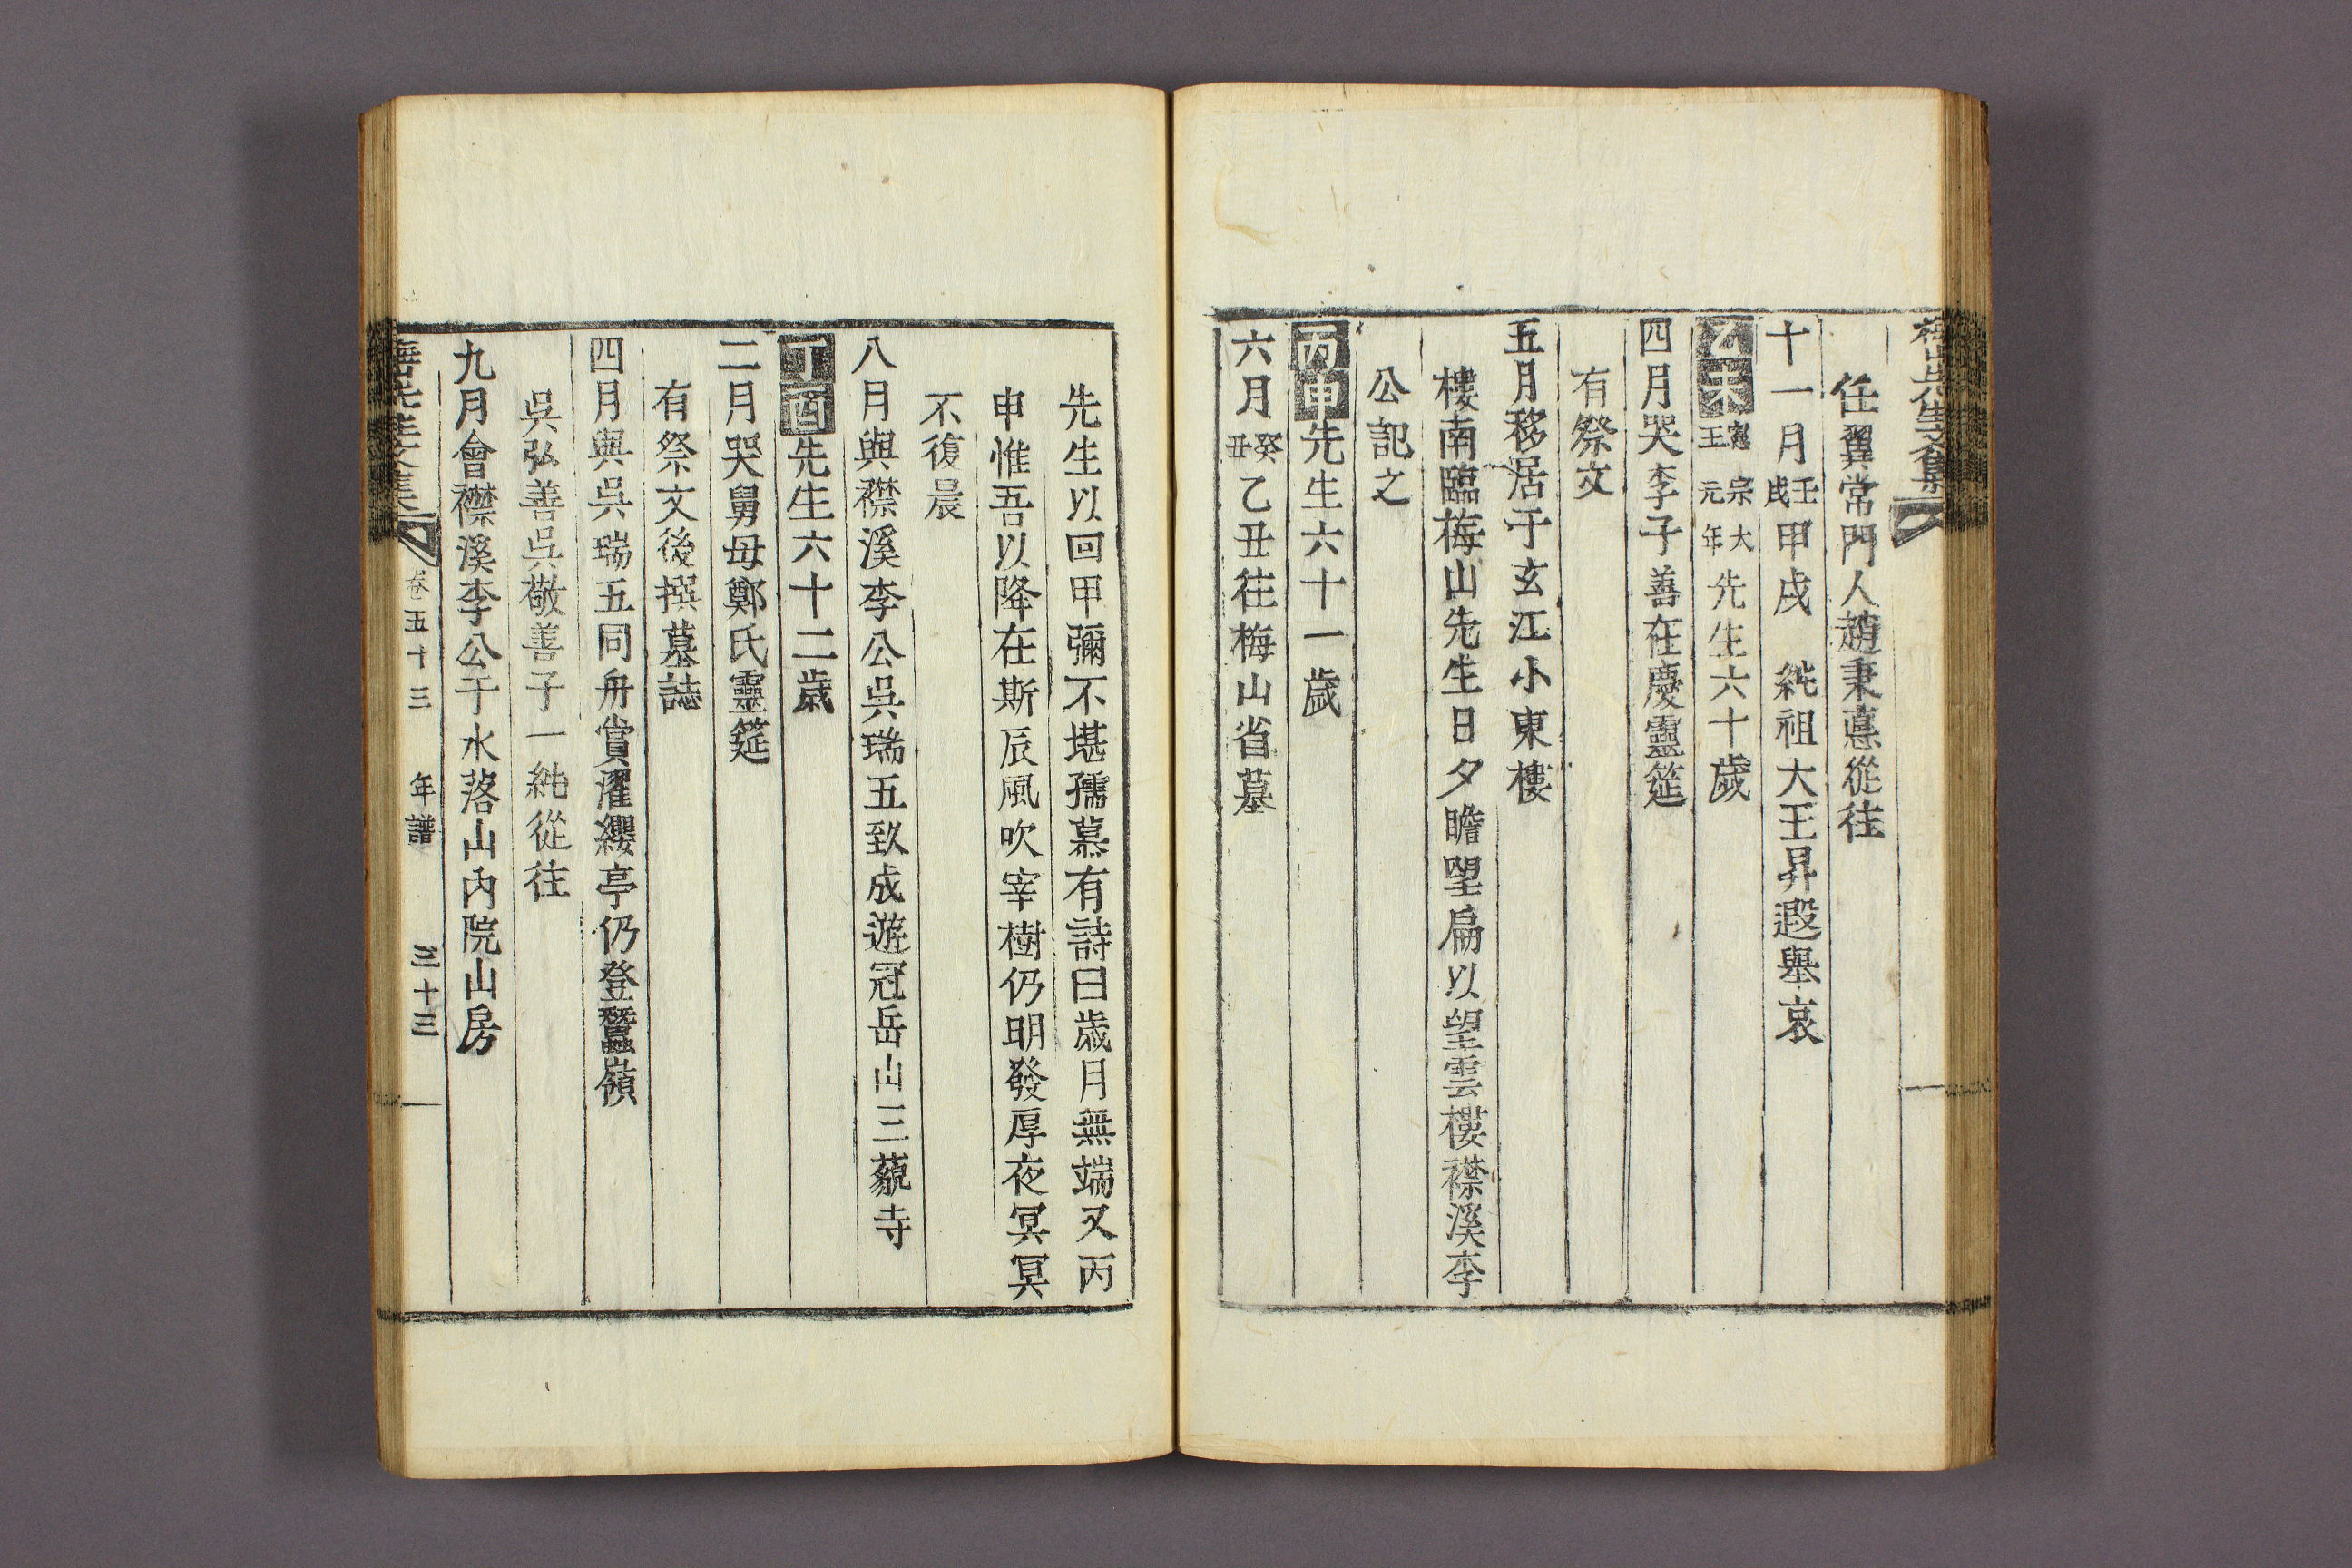 任翼常門人趙秉悳從往
十一月壬戌甲戌 純祖大王昇遐擧哀
乙未憲宗大王元年先生六十歲
四月哭李子善在慶靈筵
有祭文
五月移居于玄江小東樓
樓南臨梅山先生日夕瞻望扁以望雲樓襟溪李
公記之
丙申先生六十一歲
六月癸丑乙丑往梅山省墓
先生以回甲彌不堪孺慕有詩曰歲月無端又丙
申惟吾以降在斯辰風吹宰樹仍明發厚夜冥冥
不復晨
八月與襟溪李公吳瑞五致成遊冠岳山三藐寺
丁酉先生六十二歲
二月哭舅母鄭氏靈筵
有祭文後撰墓誌
四月與吳瑞五同舟賞濯纓亭仍登蠶嶺
吳弘善吳敬善子一純從往
九月會襟溪李公于水落山內院山房
卷五十三 年譜 三十三